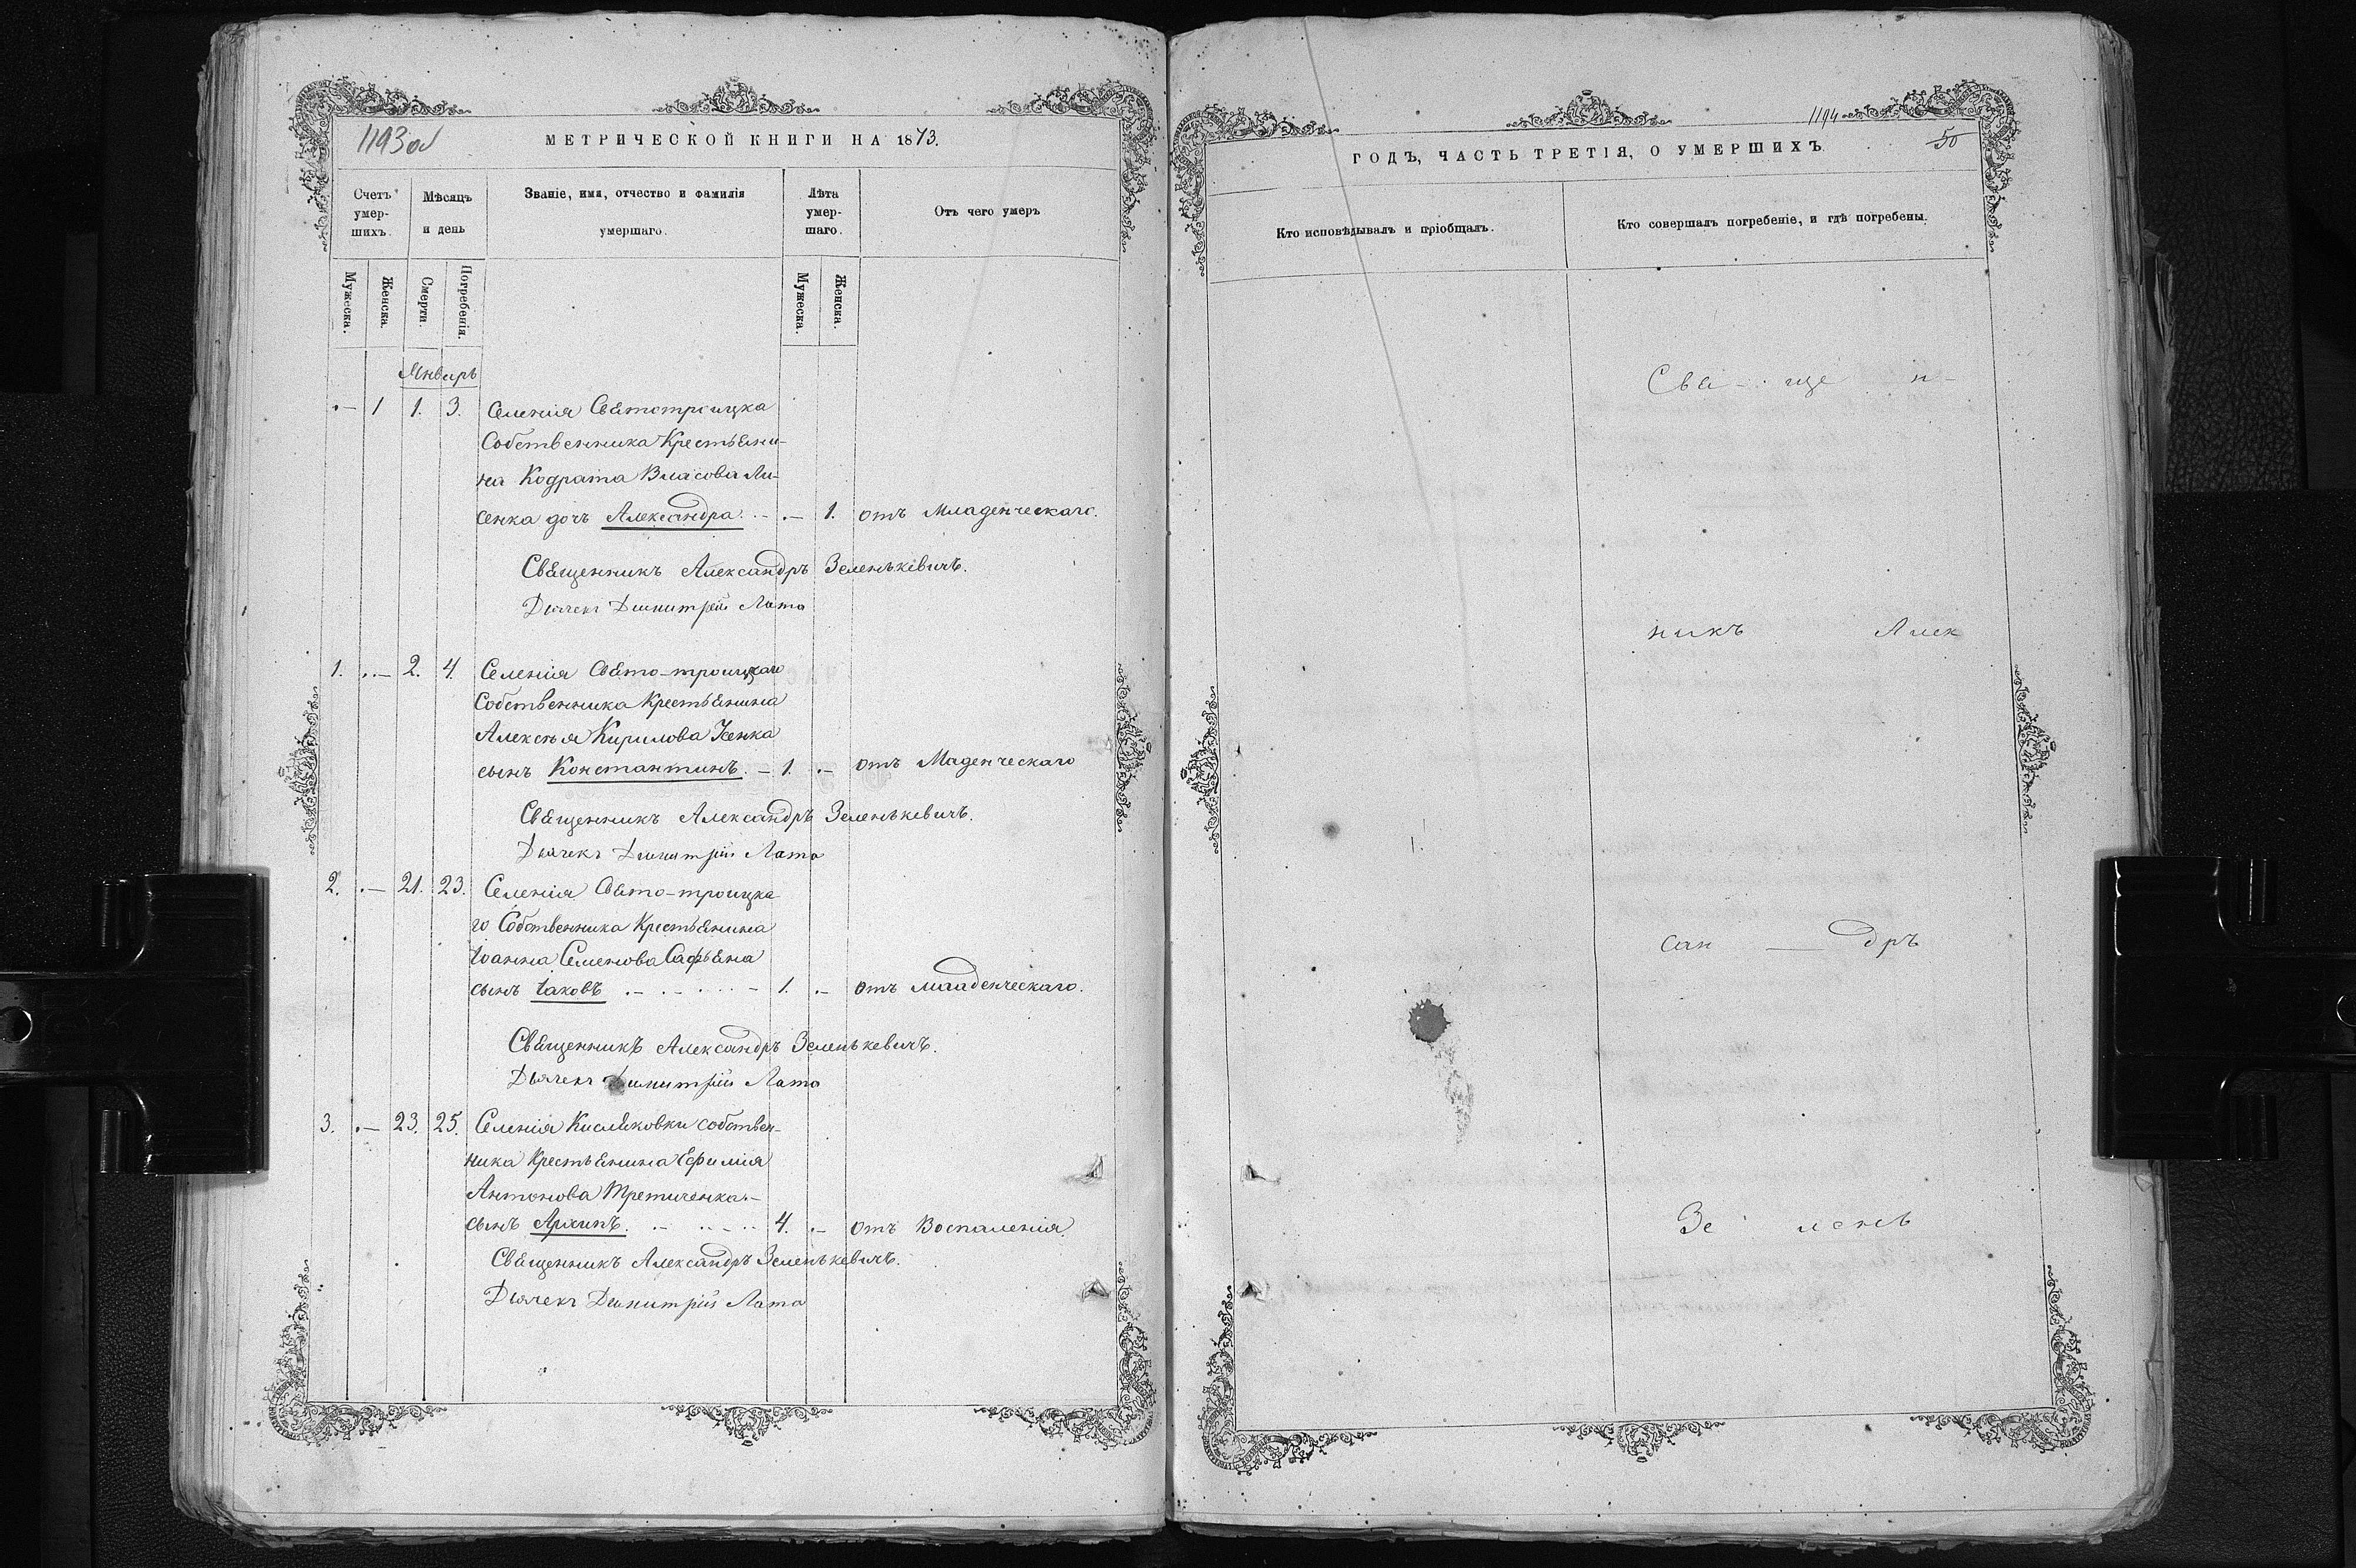 1193об
МЕТРИЧЕСКОЙ КНИГИ НА 1873.
Счетъ умер-шихъ.
Мѣсяцъ и день
Званіе, имя, отчество и фамилія умершаго.
Лѣта умер-шаго.
Отъ чего умеръ
Мужеска.
Женска.
Смерти.
Погребенія.
Мужеска.
Женска.
Январь
1 1. 3. Селенія Святотроицка
Собственника Крестьяни-
на Кодрата Власова Ли-
сенка дочь Александра. 1. отъ Младенческаго.
Священникъ Александръ Зеленькевичъ.
Дьячекъ Димитрій Лата
1. 2. 4. Селенія Свято-троицкаго
Собственника Крестьянина
Алексѣя Кирилова Усенка
сынъ Константинъ. 1. отъ Маденческаго
Священникъ Александръ Зеленькевичъ.
Дьячекъ Димитрій Лата
2. 21. 23. Селенія Свято-троицка
го Собственника Крестьянина
Іоанна Семенова Сафьяна
сынъ Іаковъ 1. отъ младенческаго.
Священникъ Александръ Зеленькевичъ.
Дьячекъ Димитрій Лата
3. 23. 25. Селенія Кисляковки собствен-
ника Крестьянина Ефимія
Антонова Третиченка
сынъ Архипъ. 4. отъ Воспаленія.
Священникъ Александръ Зеленькевичъ.
Дьячекъ Димитрій Лата
1194
50
ГОДЪ, ЧАСТЬ ТРЕТІЯ, О УМЕРШИХЪ
Кто исповѣдывалъ и пріобщалъ.
Кто совершалъ погребеніе, и гдѣ погребены.
Свя - ще н-
никъ Алек
сан — дръ
Зе лень